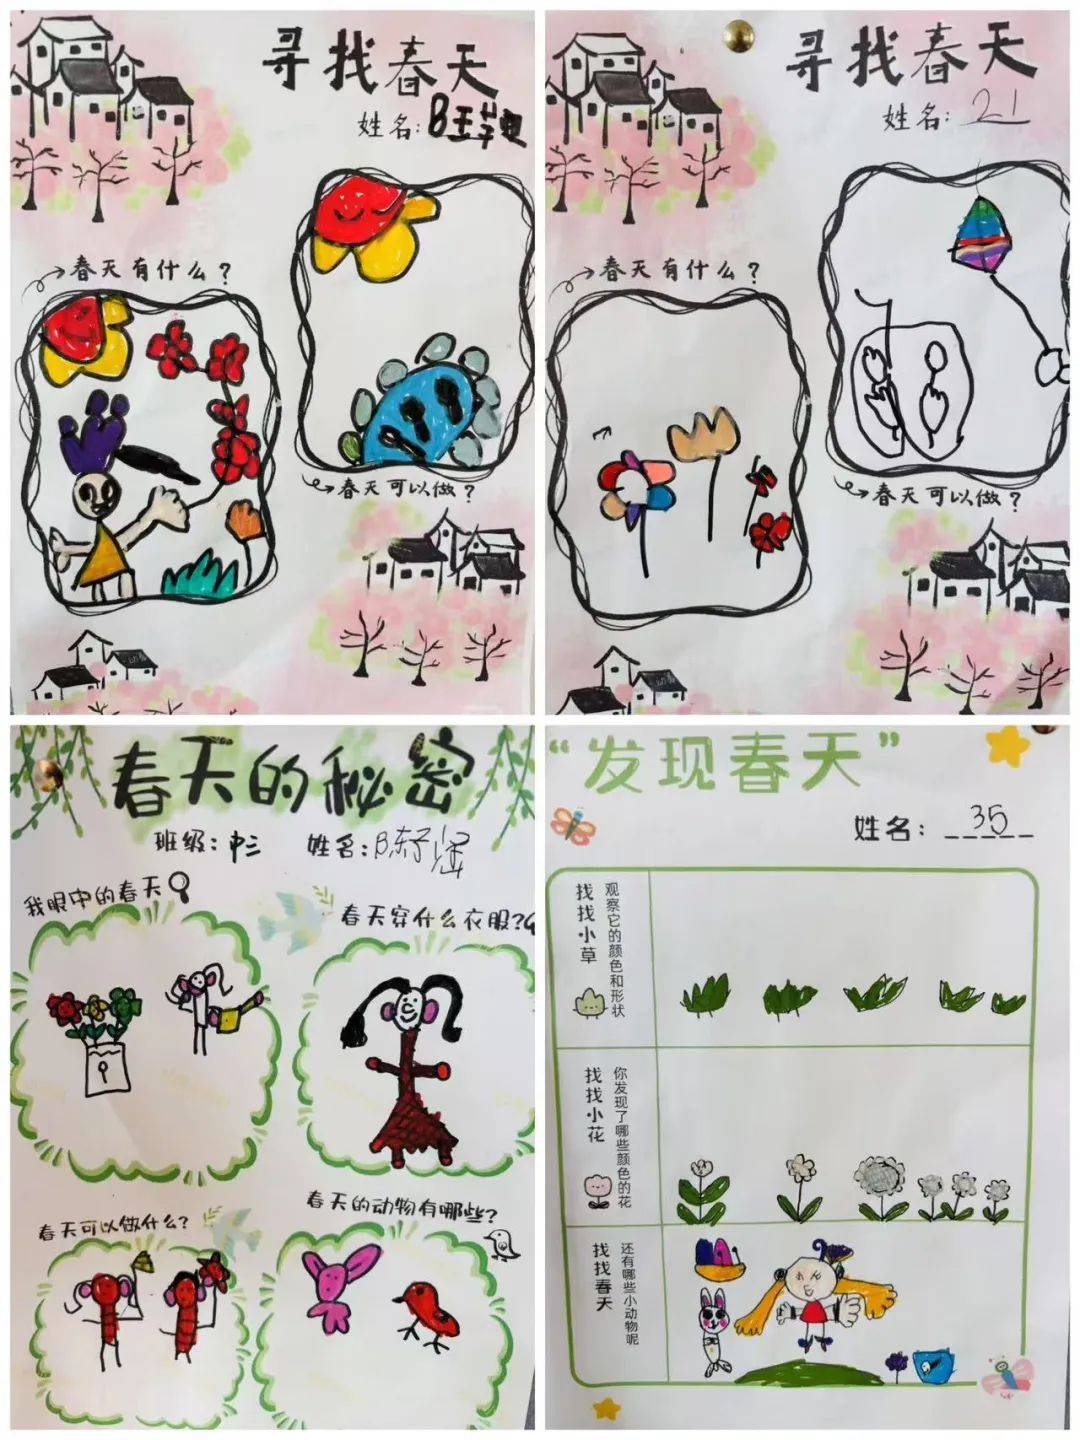 寻找春天
姓名：
春天有什么？
春天可以做？
寻找春天
姓名：21
春天有什么？
春天可以做？
春天的秘密
班级：中三 姓名：B陈子涵
我眼中的春天
春天穿什么衣服？
春天可以做什么？
春天的动物有哪些？
“发现春天”
姓名：35
找找小草
观察它的颜色和形状
找找小花
你发现了哪些颜色的花
找找春天
还有哪些小动物呢